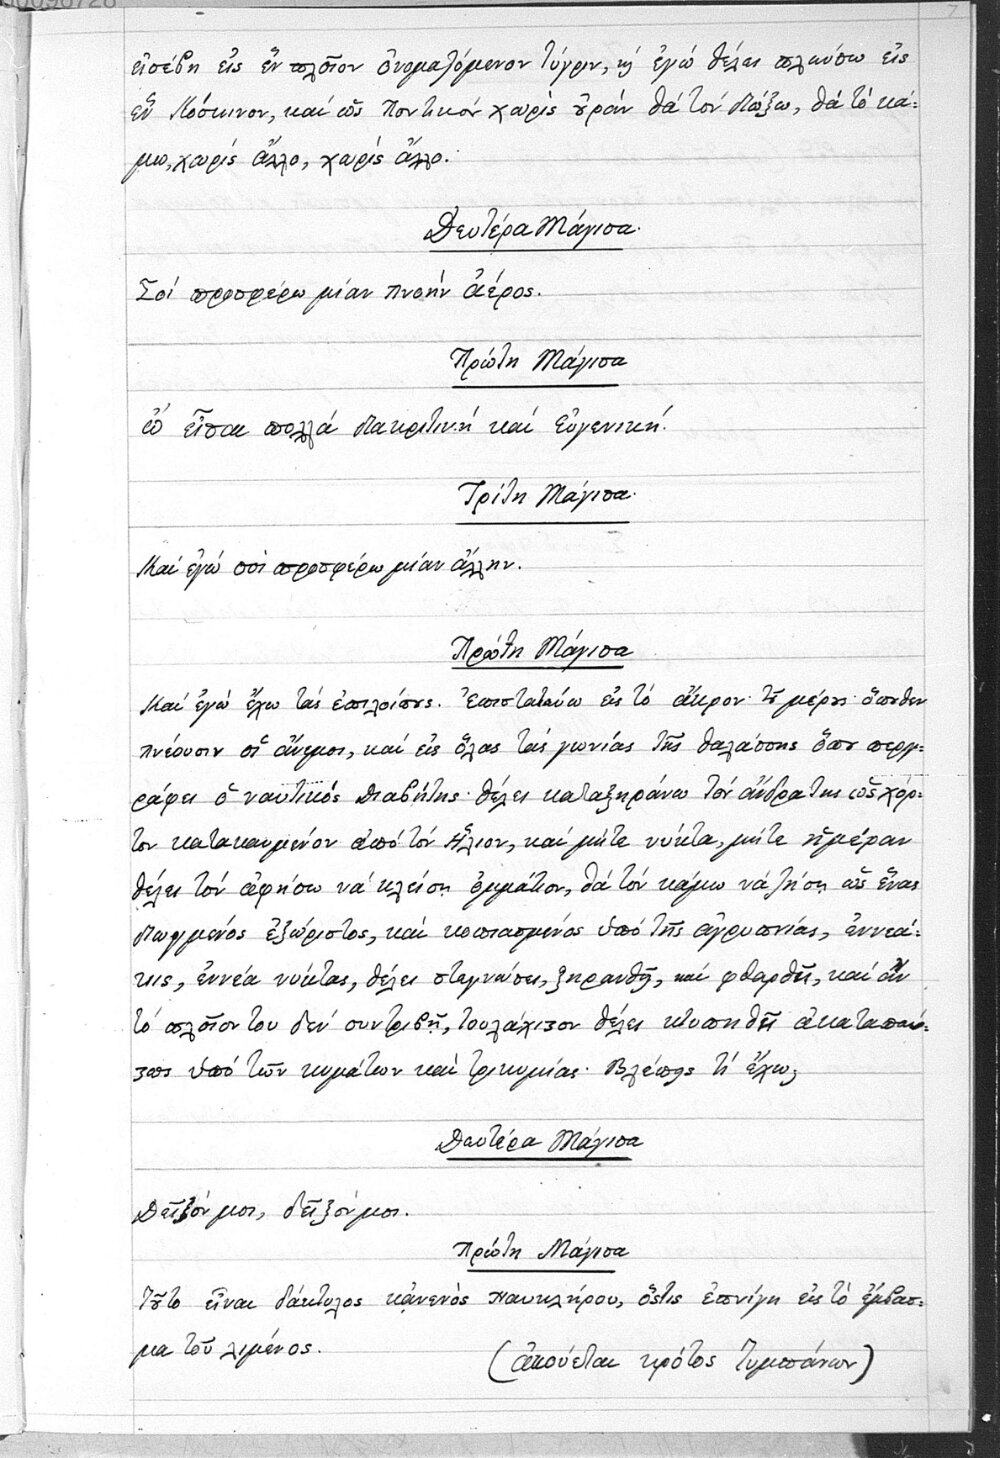 7
εἰσέβη εἰς ἓν πλοῖον ὀνομαζόμενον Τύγριν, κ ἐγώ θέλει πλεύσω εἰς
ἓν Κόσκινον, καί ὡς Ποντικόν χωρίς οὐράν θά τόν διώξω, θά τό κά-
μω, χωρίς ἄλλο, χωρίς ἄλλο.
Δευτέρα Μάγισα.
Σοί προσφέρω μίαν πνοήν ἀέρος.
Πρώτη Μάγισα
ὦ εἶσαι πολλά διακριτική καί εὐγενική.
Τρίτη Μάγισα.
Καί ἐγώ σοί προσφέρω μίαν ἄλλην.
Πρώτη Μάγισα
Καί ἐγώ ἔχω τάς ἐπιλοίπους. ἐπιστατεύω εἰς τό ἄκρον τοῦ μέρους ὅπωθεν
πνέουσιν οἱ ἄνεμοι, καί εἰς ὅλας τάς γωνίας τῆς θαλάσσης ὅπου περιγ-
ράφει ὁ ναυτικός διαβήτης. θέλει καταξηράνω τόν ἄνδρα της ὡς χόρ-
τον κατακαυμένον ἀπό τόν Ἥλιον, καί μήτε νύκτα, μήτε ἡμέραν
θέλει τόν ἀφήσω νά κλείσῃ ὀμμάτιον, θά τόν κάμω νά ζήσῃ ὡς ἕνας
διωγμένος ἐξώριστος, καί κοπιασμένος ὑπό τῆς ἀγρυπνίας, ἐννεά-
κις, ἐννέα νύκτας, θέλει στεγνώσει, ξηρανθῇ, καί φθαρθῇ, καί ἄν
τό πλοῖον του δέν συντριβῇ, τουλάχιστον θέλει κτυπηθῇ ἀκαταπαύ-
στως ὑπό τῶν κυμάτων καί τρικυμίας. Βλέπεις τί ἔχω;
Δευτέρα Μάγισα
Δεῖξόν μοι, δεῖξόν μοι.
Πρώτη Μάγισα
Τοῦτο εἶναι δάκτυλος κᾀνενός Ναυκλήρου, ὅστις ἐπνίγη εἰς τό ἔμβασ-
μα τοῦ λιμένος.
(ἀκούεται κρότος τυμπάνων)